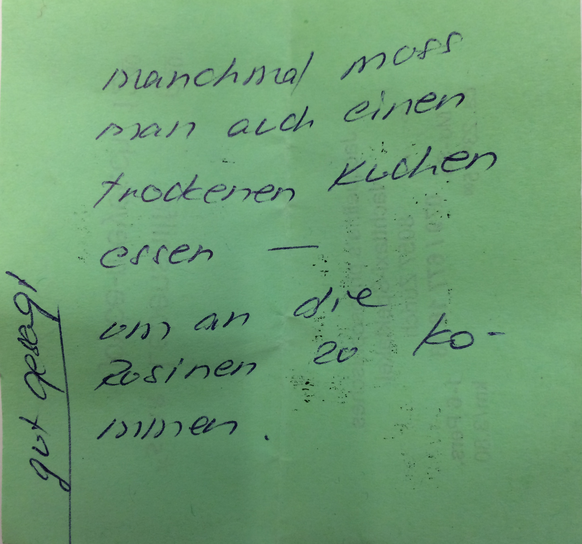 manchmal muss
man auch einen
trockenen Kuchen
essen —
um an die
Rosinen zu ko-
mmen.
gut gesagt